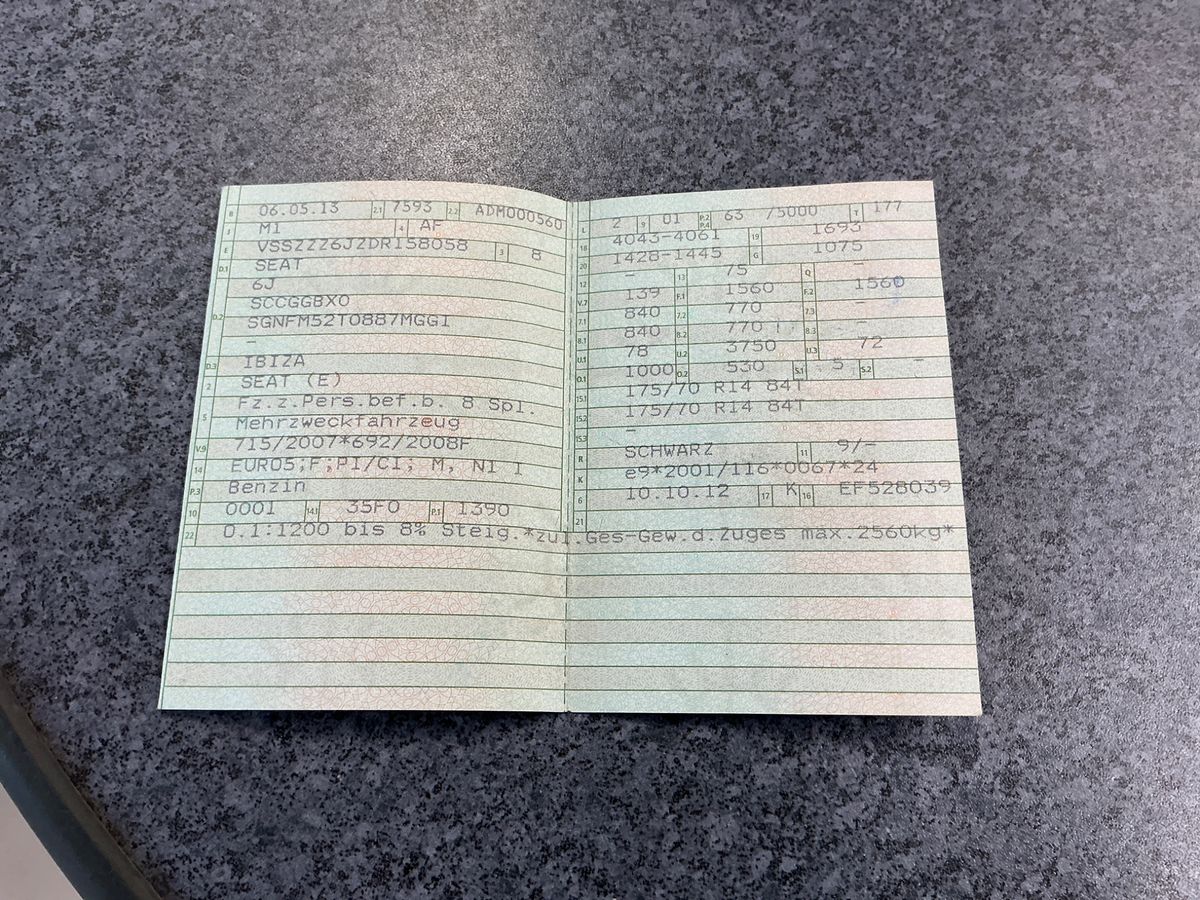 B 06.05.13 2.1 7593 2.2 ADM000560
J M1 4 AF
E VSSZZZ6JZDR158058 3 8
D.1 SEAT
6J
D.2 SCCGGBX0
SGNFM52T0887MGG1
-
D.3 IBIZA
2 SEAT (E)
5 Fz.z.Pers.bef.b. 8 Spl.
Mehrzweckfahrzeug
V.9 715/2007*692/2008F
14 EURO5;F;PI/CI, M, N1 I
P.3 Benzin
10 0001 14.1 35F0 P.1 1390
22 O.1:1200 bis 8% Steig.*zul.Ges-Gew.d.Zuges max.2560kg*
L 2 9 01 P.2 P.4 63 /5000 T 177
18 4043-4061 19 1693
20 1428-1445 G 1075
12 - 13 75 Q -
V.7 139 F.1 1560 F.2 1560
7.1 840 7.2 770 7.3 -
8.1 840 8.2 770 8.3 -
U.1 78 U.2 3750 U.3 72
O.1 1000 O.2 530 S.1 5 S.2 -
15.1 175/70 R14 84T
15.2 175/70 R14 84T
15.3 -
R SCHWARZ 11 9/-
K e9*2001/116*0067*24
6 10.10.12 17 K 16 EF528039
21